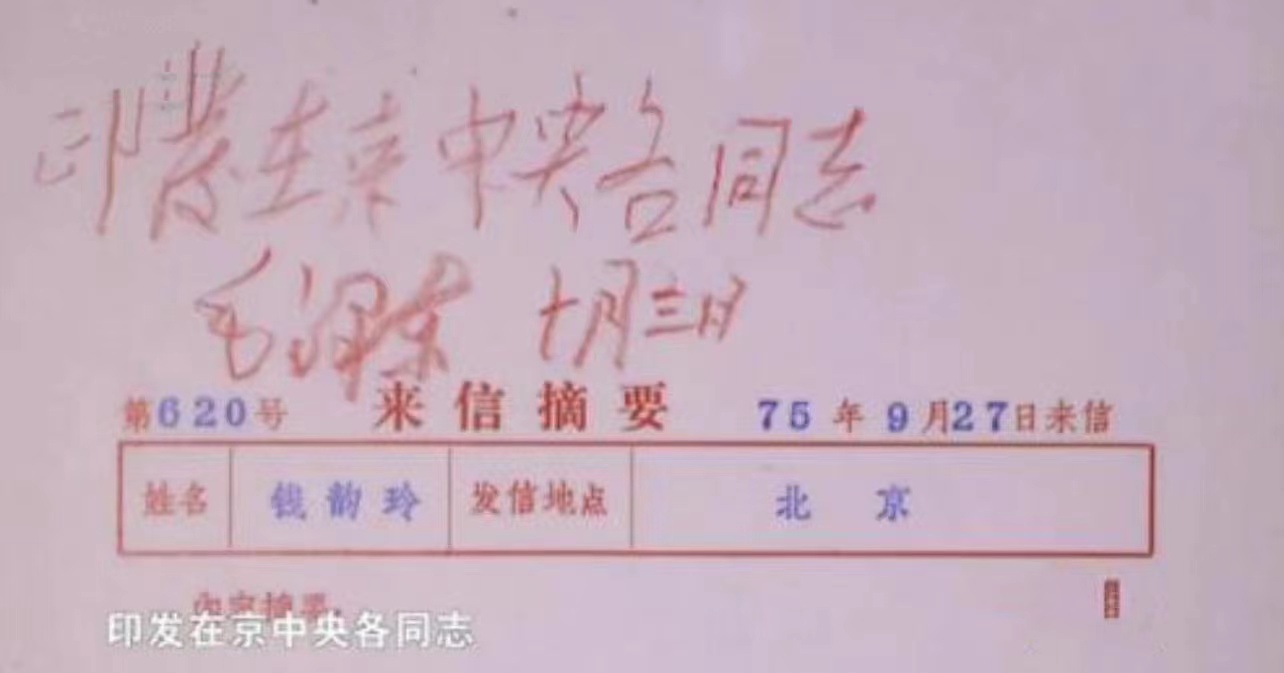 印发在京中央各同志
毛泽东 十月三日
第620号 来信摘要 75年9月27日来信
姓名 钱韵玲 发信地点 北京
内容摘要:
印发在京中央各同志